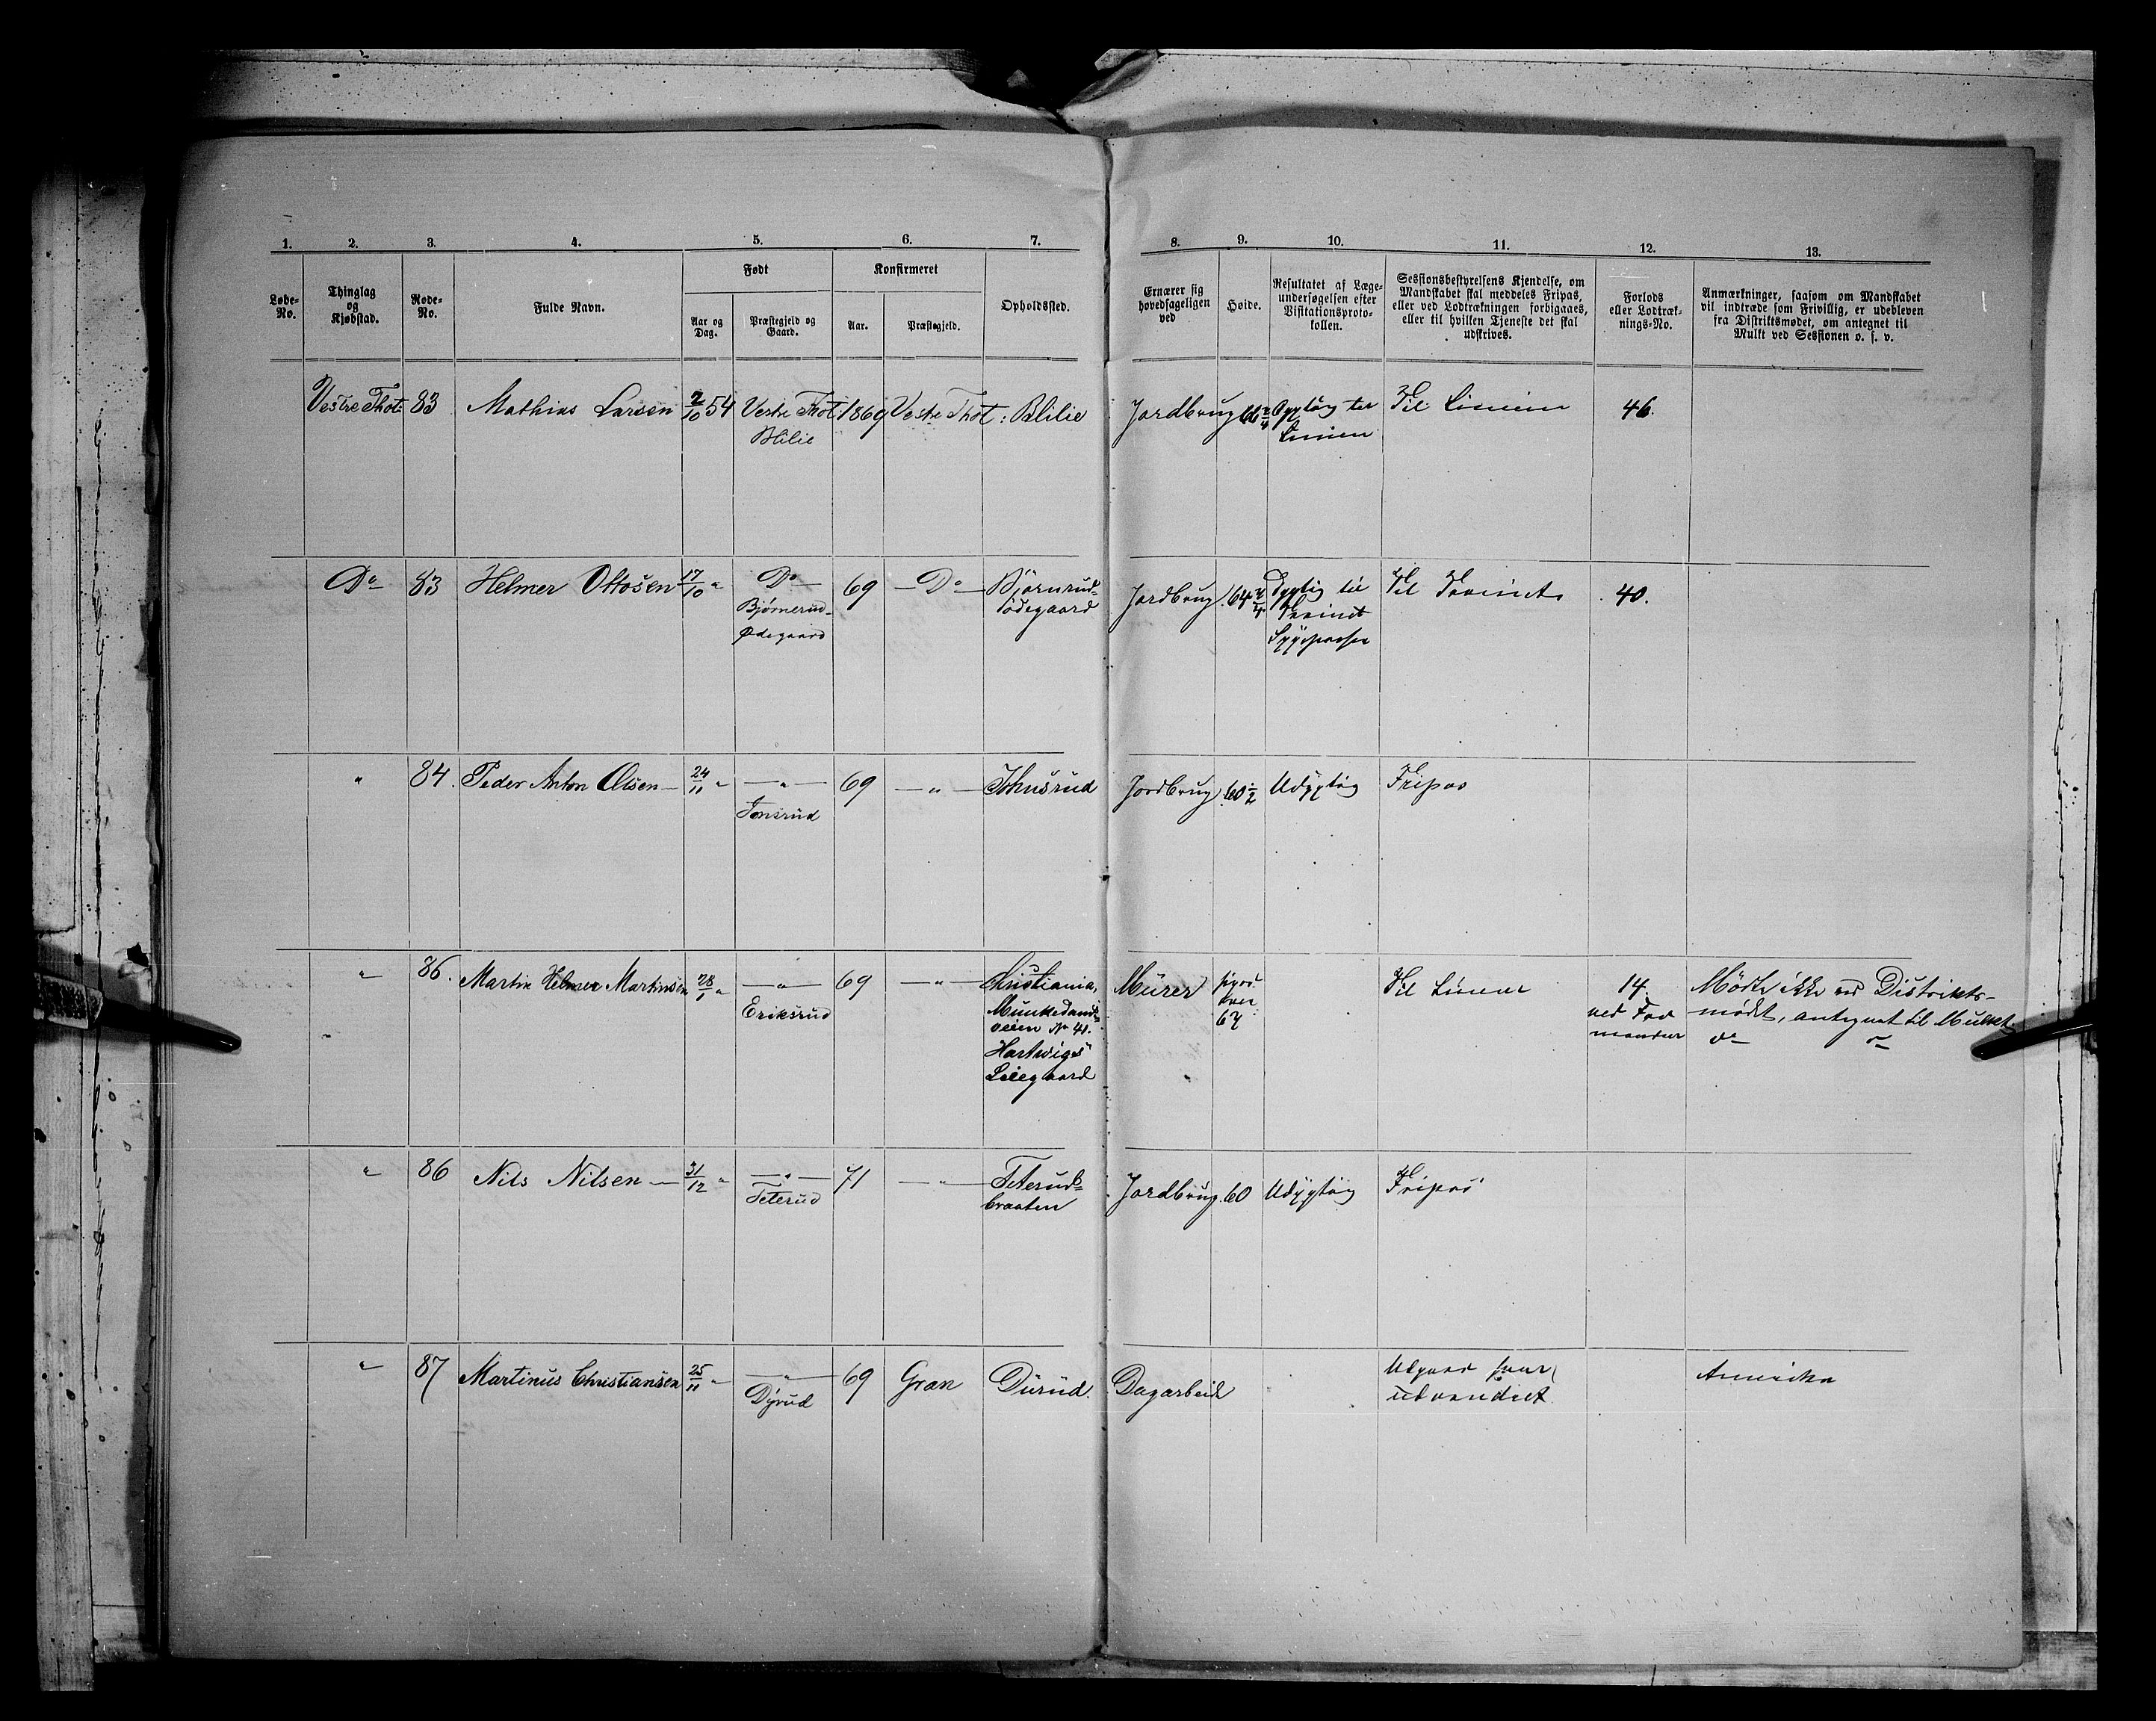 1. 2. 3. 4. 5. 6. 7. 8. 9. 10. 11. 12. 13.
Løbe-No.
Thinglag og Kjøbstad.
Rode-No.
Fulde Navn.
Født
Aar og Dag.
Præstegjeld og Gaard.
Konfirmeret
Aar.
Præstegjeld.
Opholdssted.
Ernærer sig hovedsageligen ved
Høide.
Resultatet af Læge-
undersøgelsen efter
Visitationsproto-
kollen.
Sessionsbestyrelsens Kjendelse, om
Mandskabet skal meddeles Fripas,
eller ved Lodtrækningen forbigaaes,
eller til hvilken Tjeneste det skal
udskrives.
Forlods
eller Lodtræk-
nings-No.
Anmærkninger, saasom om Mandskabet
vil indtræde som Frivillig, er udebleven
fra Distriktsmødet, om antegnet til
Mulkt ved Sessionen o. s. v.
Vestre Thot: 83 Mathias Larsen 2/10 54 Vestre Thot: 1869 Vestre Thot: Blilie Jordbrug Dygtig til Til Linien 46.
Blilie Linien
Do 83 Helmer Ottosen 17/10 " Do 69 Do Bjørnrud- Jordbrug 64 Dygtig til Til Trainet 40.
Bjørnerud- ødegaard Trainet
Ødegaard
" 84. Peder Anton Olsen 24/11 " " 69 " Johnsrud Jordbrug 60 1/2 Udygtig Fripas
Jonsrud
" 86. Martin Helmer Martinsen 28/1 " " 69 " Christiania, Murer Til Linien 14. Mødte ikke ved Distrikts-
Eriksrud Munkedams- ved For- mødet, antegnet til Mulkt
veien No 41. 67 mænd
Hartwigs
Leiegaard
" 86 Nils Nilsen 31/12 " " 71 " Teteruds- Jordbrug 60 Udygtig Fripas
Teterud braaten
" 87 Martinus Christiansen 25/11 " " 69 Gran Dürüd. Dagarbeid Udgaar som Amerika
Dyrud udvandret